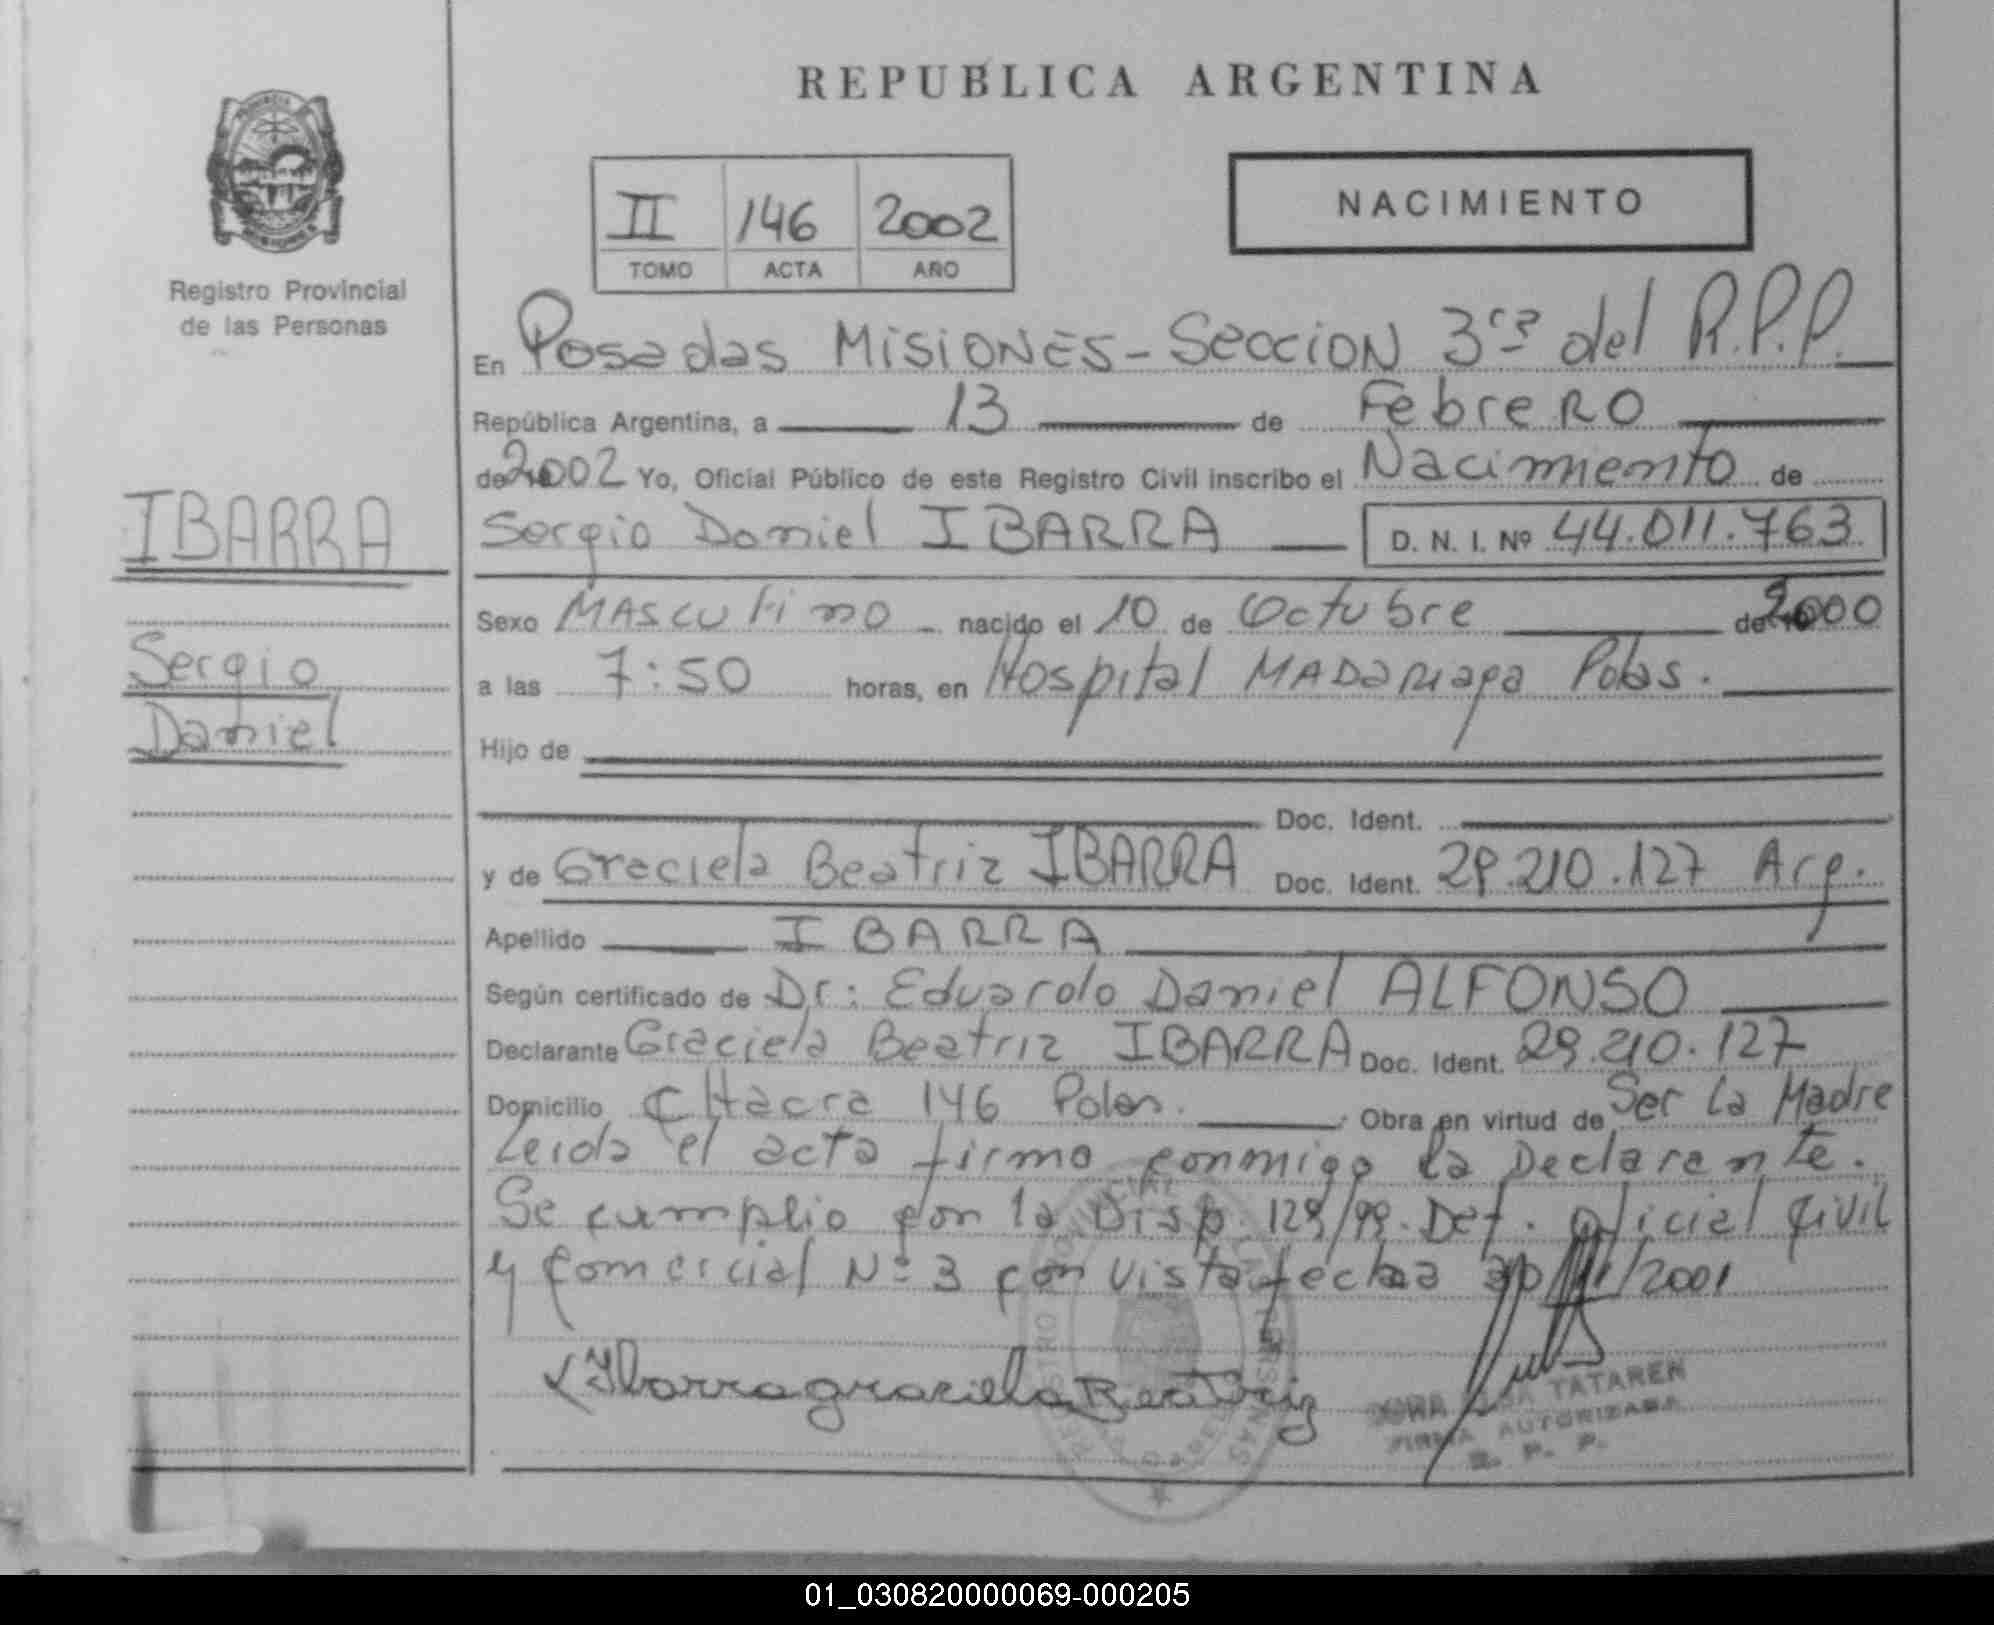 REPUBLICA ARGENTINA
PROVINCIA
MISIONES
Registro Provincial
de las Personas
II 146 2002
TOMO ACTA AÑO
NACIMIENTO
En Posadas MISIONES - Seccion 3ra del R.P.P.
República Argentina, a 13 de Febrero
de 2002 Yo, Oficial Público de este Registro Civil inscribo el Nacimiento de
IBARRA
Sergio Daniel IBARRA D. N. I. Nº 44.011.763
Sexo Masculino nacido el 10 de Octubre de 2000
Sergio
Daniel
a las 7:50 horas, en Hospital Madariaga Pdas.
Hijo de
Doc. Ident.
y de Graciela Beatriz IBARRA Doc. Ident. 29.210.127 Arg.
Apellido IBARRA
Según certificado de Dr: Eduardo Daniel ALFONSO
Declarante Graciela Beatriz IBARRA Doc. Ident. 29.210.127
Domicilio CHacra 146 Pdas. Obra en virtud de Ser La Madre
Leida el acta firma conmigo la Declarante.
Se cumplio con la Disp. 129/99. Def. oficial Civil
y Comercial Nº 3 con vista fecha /2001
Ibarra graciela Beatriz
TATAREN
FIRMA AUTORIZADA
R. P. P.
01_030820000069-000205